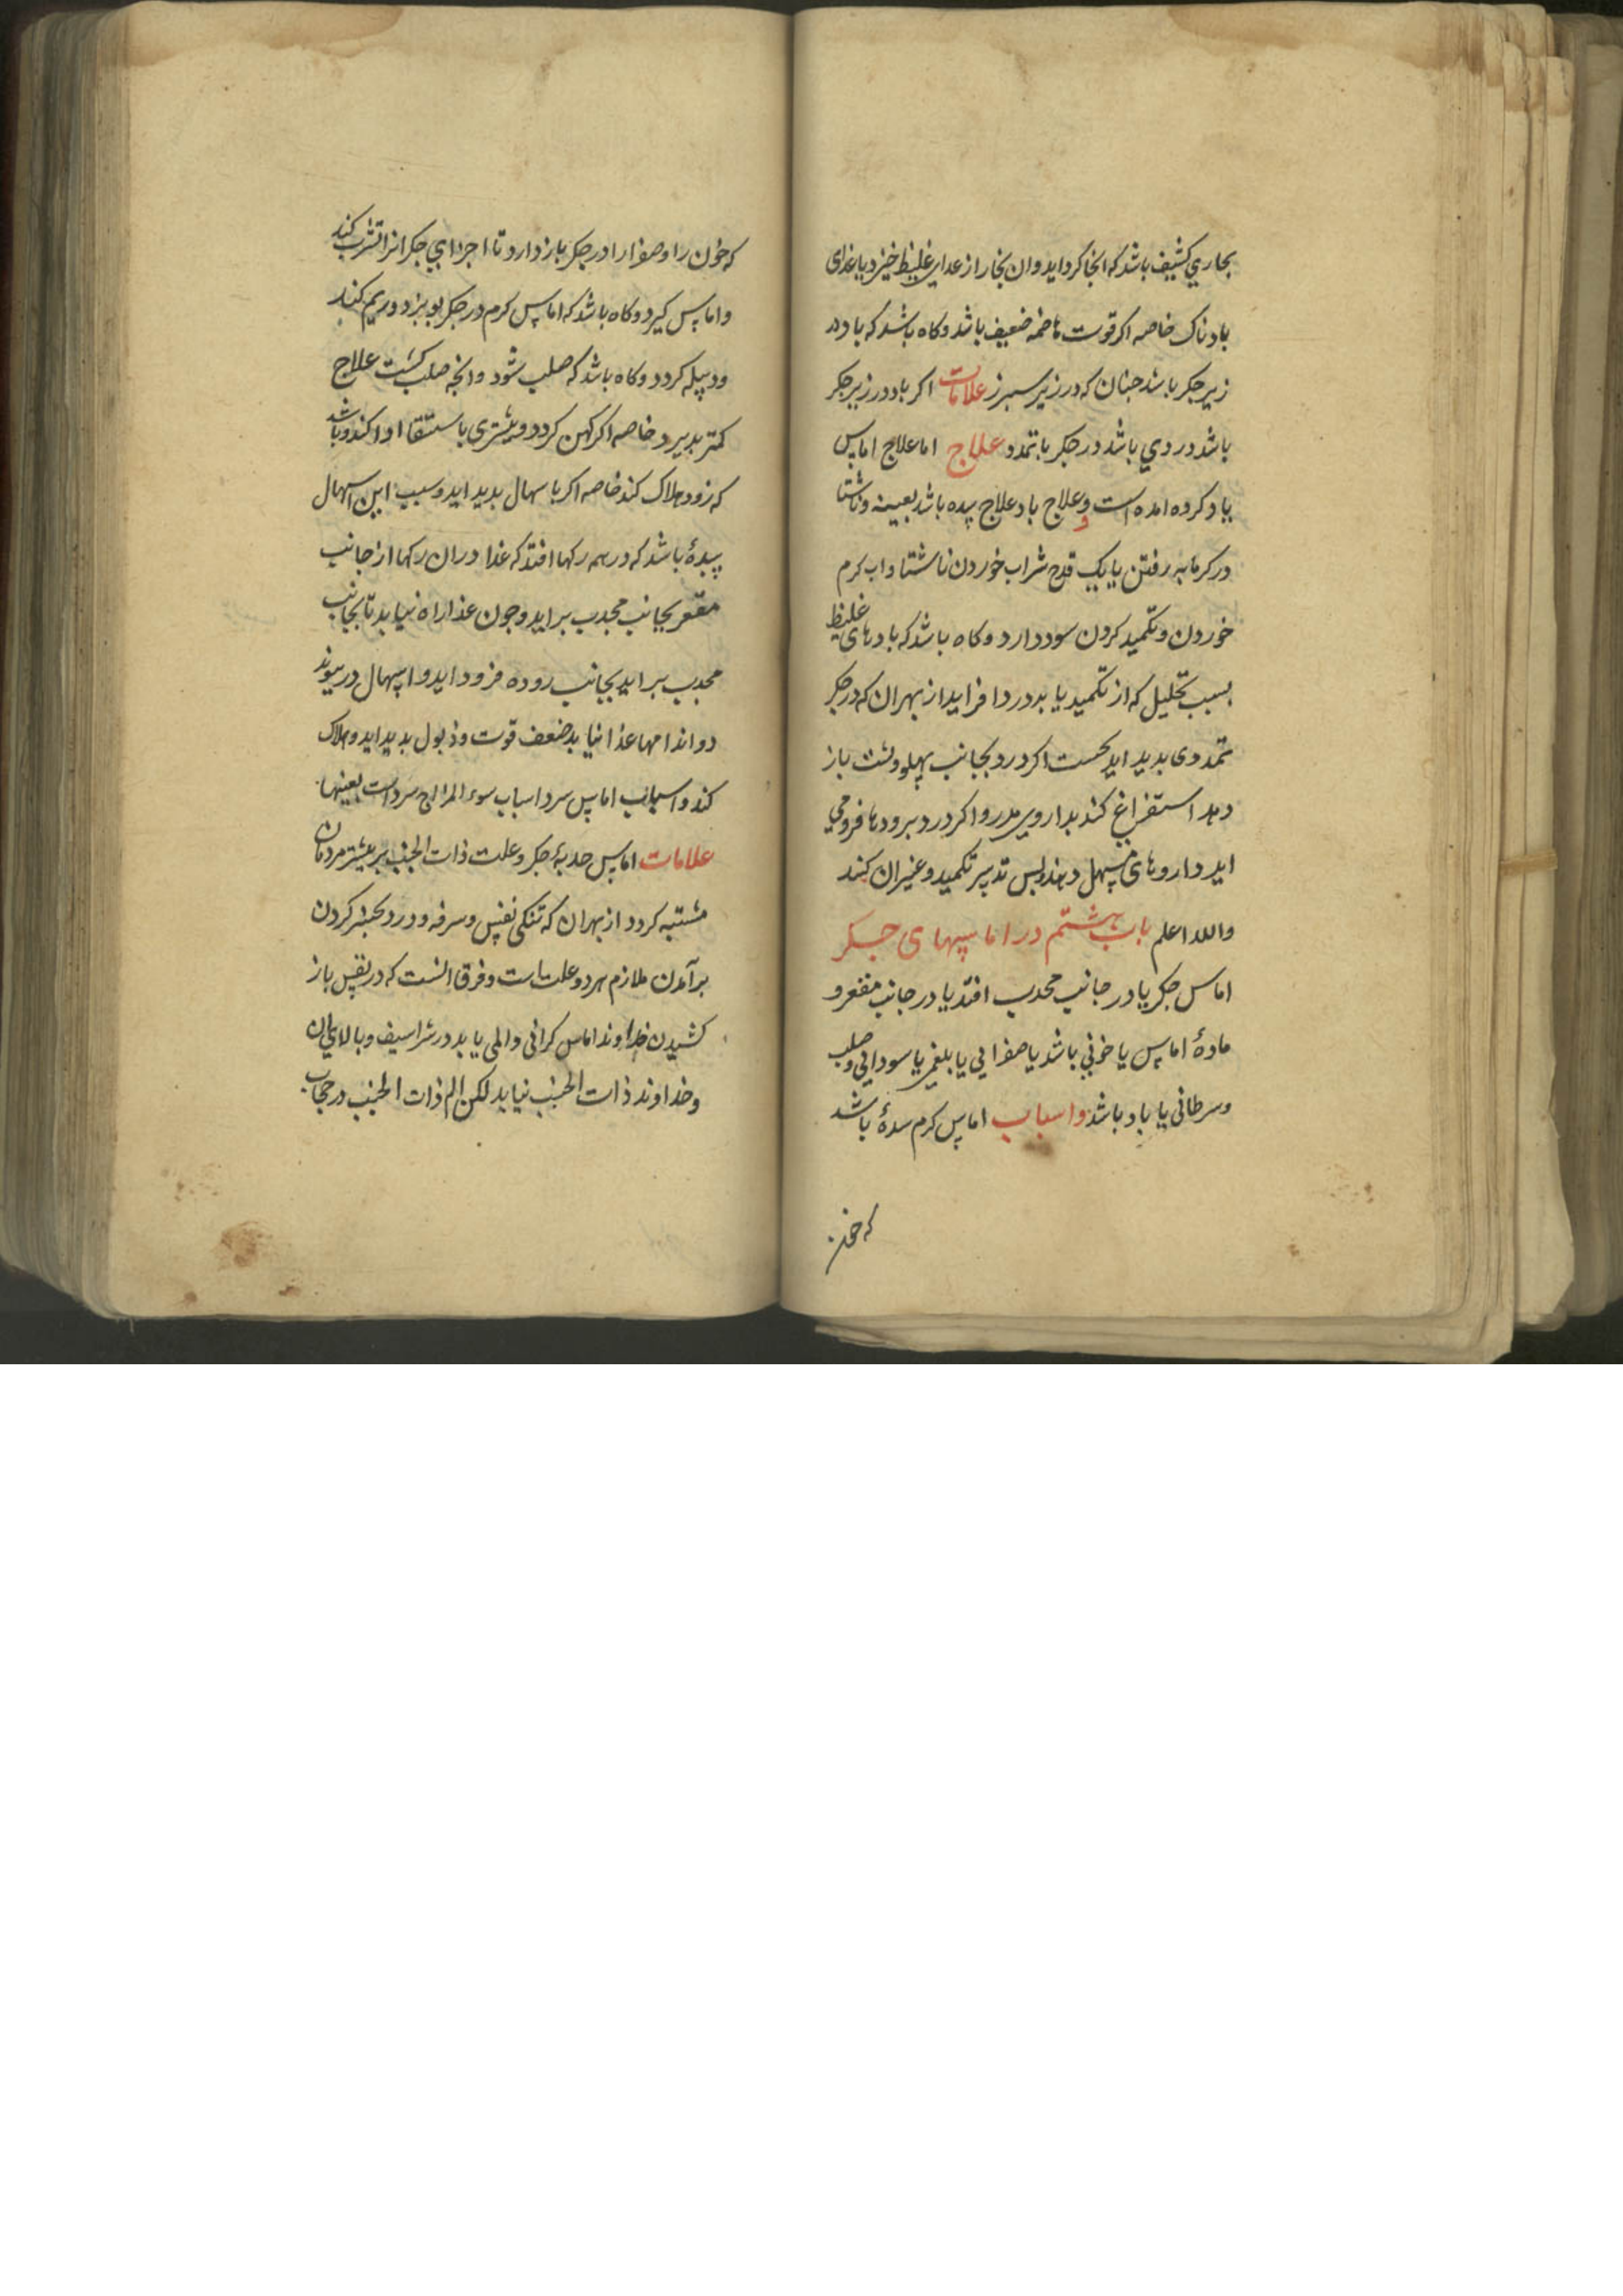 بخاري كشيف باشد كه انجا كرد ايد وان بخار از عداي غليظ خيزد يا غذاى
بادناك خاصه اكر قوت هاضمه ضعيف باشد وكاه باشد كه باد در
زير جكر باشد جنان كه در زير سبرز علامات اكر باد در زير جكر
باشد دردي باشد در جكر با تمدد علاج اما علاج اماس
ياد كرده امده است وعلاج باد علاج سده باشد بعينه وناشتا
در كرمابه رفتن يا يك قدح شراب خوردن ناشتا واب كرم
خوردن وتكميد كردن سود دارد وكاه باشد كه بادهاى غليظ
بسبب تحليل كه از تكميد يابد درد افزايد از بهران كه در جكر
تمددى بديد ايد نخست اكر درد بجانب بهلو وبشت باز
دهد استفراغ كند بداروى مدر واكر درد برودها فرو مي
ايد داروهاى مسهل دهند وبس تدبير تكميد وغيران كند
والله اعلم باب هشتم در اماسهاى جكر
اماس جكر يا در جانب محدب افتد يا در جانب مقعر و
مادۀ اماس يا خوني باشد يا صفرايي يا بلغمي يا سودايي وصلب
وسرطانى يا باد باشد واسباب اماس كرم سدۀ باشد
كه خون
كه خون را وصفرا را در جكر باز دارد تا اجزاي جكر انرا تشرب كند
واماس كيرد وكاه باشد كه اماس كرم در جكر بوبزد وريم كند
ودبيله كردد وكاه باشد كه صلب شود وانجه صلب كشت علاج
كمتر بديرد خاصه اكر كهن كردد وبيشترى باستسقا ادا كند وباشد
كه زود هلاك كند خاصه اكر با سهال بديد ايد وسبب اين اسهال
سدۀ باشد كه در همه ركها افتد كه غذا در ان ركها از جانب
مقعر بجانب محدب برايد وجون عذا راه نيابد تا بجانب
محدب برايد بجانب روده فرود ايد واسهال در بيوند
دو اندامها عذا نيابد ضعف قوت وذبول بديد ايد وهلاك
كند واسباب اماس سرد اسباب سوء المزاج سرد است بعينها
علامات اماس حدبۀ جكر وعلت ذات الجنب بر بيشتر مردمان
مشتبه كردد از بهران كه تنكى نفس وسرفه ودرد بجنبر كردن
برآمدن ملازم هر دو علت است وفرق انست كه در نفس باز
كشيدن خداوند اماس كرانى والمى يابد در شراسيف وبالاى ان
وخداوند ذات الجنب نيابد لكن الم ذات الجنب در حجاب